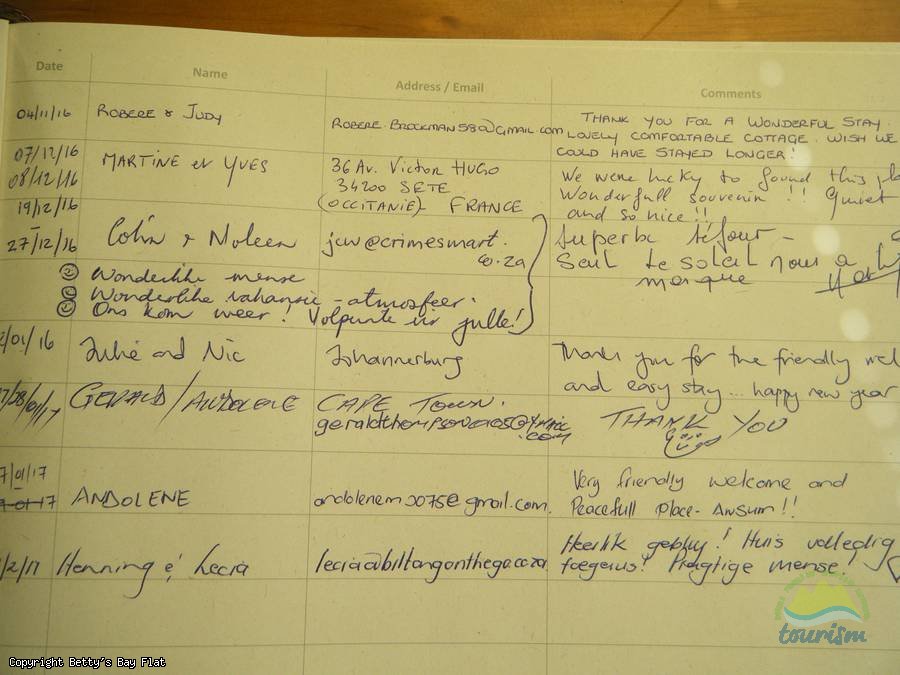 Date Name Address / Email Comments
04/11/16 ROBERE & JUDY ROBERE.BROCKMAN580@GMAIL.COM THANK YOU FOR A WONDERFUL STAY.
LOVELY COMFORTABLE COTTAGE. WISH WE
COULD HAVE STAYED LONGER!
07/12/16 MARTINE et YVES 36 Av. Victor HUGO We were lucky to found this
08/12/16 34200 SETE Wonderfull souvenir !! Quiet
19/12/16 (OCCITANIE) FRANCE and so nice!!
27/12/16 Colin & Noleen jcw@crimesmart. Superbe séjour -
co.za Seul le soleil nous a
manqué
Wonderlike mense
Wonderlike vakansie-atmosfeer.
Ons kom weer! Volpunte vir julle!
/01/16 Julie and Nic Johannerburg Thank you for the friendly wel
and easy stay... happy new year
/28/01/17 GERALD/ANDOLENE CAPE TOWN. THANK YOU
.com
7/01/17 Very friendly welcome and
ANDOLENE @gmail.com. Peacefull Place- AWSUM!!
/2/17 Henning & Lecia lecia@biltongonthego.co.za Heerlik gebly! Huis volledig
toegerus! Pragtige mense!
tourism
Copyright Betty's Bay Flat